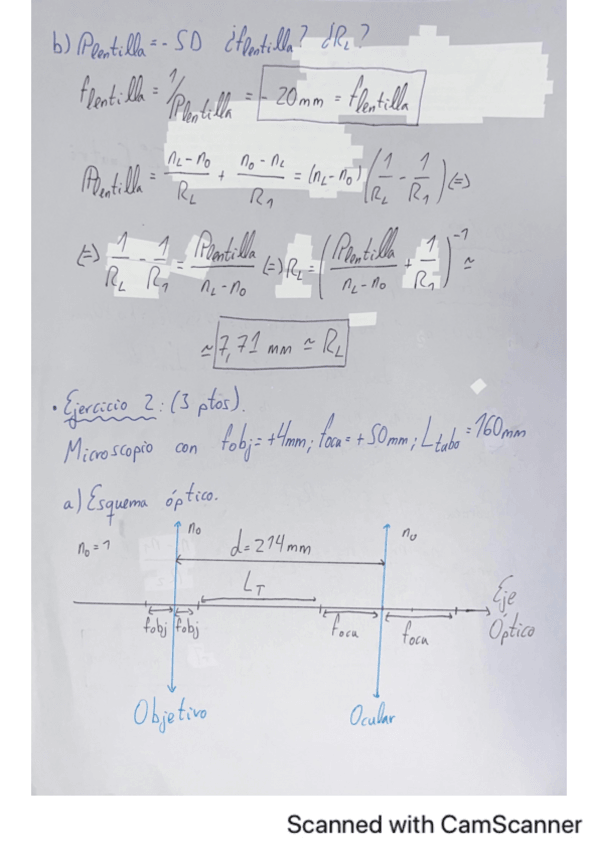 b) Plentilla = - 5D ¿flentilla? ¿RL?
flentilla = 1/Plentilla = - 20mm = flentilla
Plentilla = (nL-n0)/RL + (n0-nL)/R1 = (nL-n0) (1/RL - 1/R1) (=)
(=) 1/RL - 1/R1 = Plentilla/(nL-n0) (=) RL = (Plentilla/(nL-n0) + 1/R1)^-1 ≃
≃ 7,71 mm ≃ RL
· Ejercicio 2: (3 ptos).
Microscopio con fobj = +4mm; focu = +50mm; Ltubo = 160mm
a) Esquema óptico.
n0 = 1
n0
d = 214mm
n0
LT
Eje
Óptico
fobj fobj
focu
focu
Objetivo
Ocular
Scanned with CamScanner